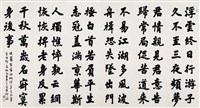 浮雲終日行遊子
久不至三夜頻夢
君情親見君意告
歸常局促苦道來
不易江湖多風波
舟楫恐失墜出門
搔白首若負平生
志冠蓋滿京華斯
人獨憔悴孰云網
恢恢將老身反累
千秋萬歲名寂寞
身後事